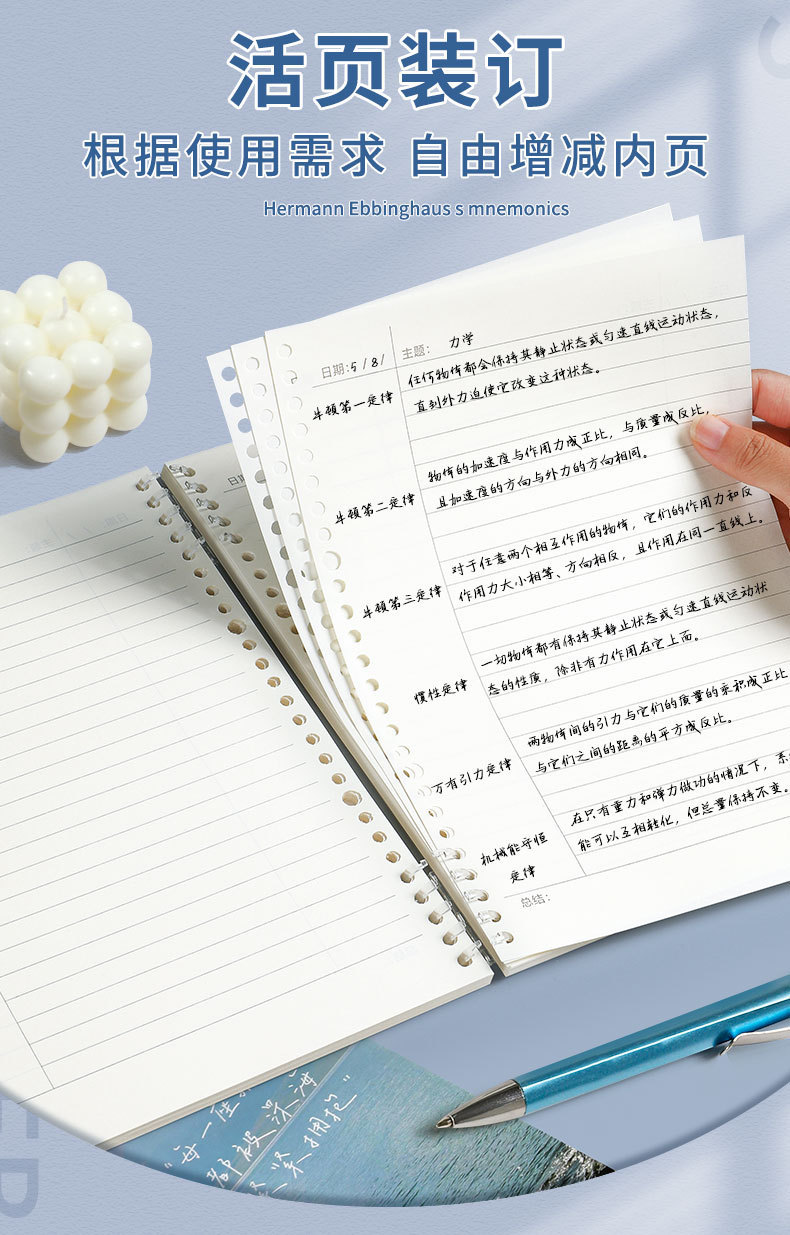 活页装订
根据使用需求 自由增减内页
Hermann Ebbinghaus s mnemonics
日期:5/8/
主题: 力学
牛顿第一定律
任何物体都会保持其静止状态或匀速直线运动状态，
直到外力迫使它改变这种状态。
牛顿第二定律
物体的加速度与作用力成正比，与质量成反比，
且加速度的方向与外力的方向相同。
牛顿第三定律
对于任意两个相互作用的物体，它们的作用力和反
作用力大小相等、方向相反，且作用在同一直线上。
惯性定律
一切物体都有保持其静止状态或匀速直线运动状
态的性质，除非有力作用在它上面。
万有引力定律
两物体间的引力与它们的质量的乘积成正比
与它们之间的距离的平方成反比。
机械能守恒
定律
在只有重力和弹力做功的情况下，系
能可以互相转化，但总量保持不变。
总结:
"每一座
都被深海
紧拥抱"